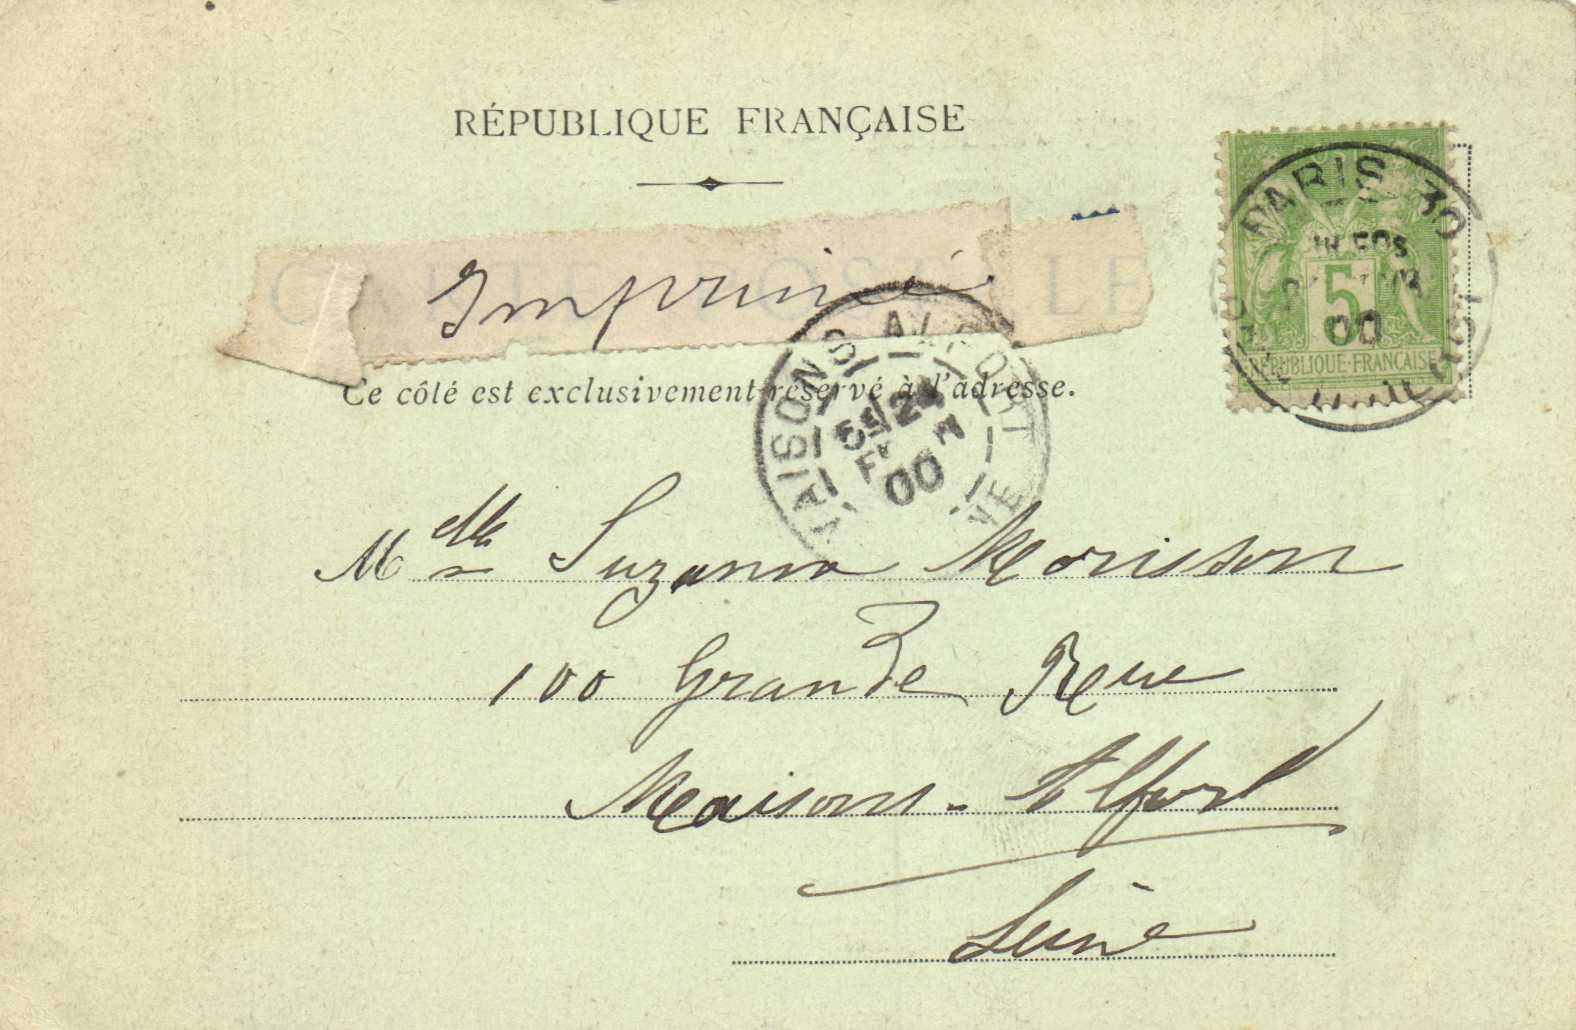 RÉPUBLIQUE FRANÇAISE
CARTE POSTALE
Imprimé
Ce côté est exclusivement réservé à l'adresse.
PARIS 30
00
5
RÉPUBLIQUE-FRANÇAISE
MAISONS ALFORT
5E 24
00
Melle Suzanne Morisson
100 Grande Rue
Maisons-Alfort
Seine